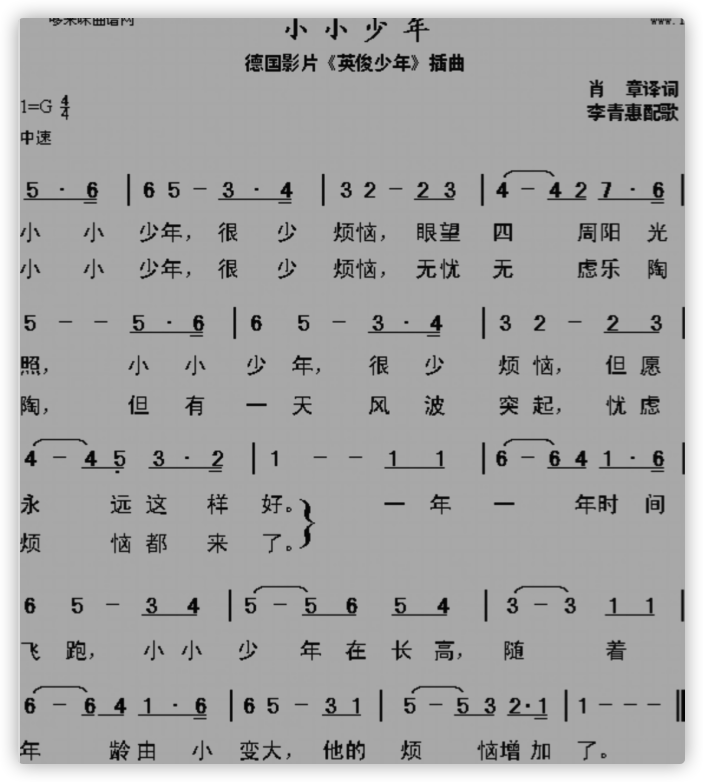 哆来咪曲谱网
www.1
小小少年
德国影片《英俊少年》插曲
肖 章译词
1=G 4/4
李青惠配歌
中速
5 · 6 | 6 5 - 3 · 4 | 3 2 - 2 3 | 4 - 4 2 7 · 6 |
小 小 少年, 很 少 烦恼, 眼望 四 周阳 光
小 小 少年, 很 少 烦恼, 无忧 无 虑乐 陶
5 - - 5 · 6 | 6 5 - 3 · 4 | 3 2 - 2 3 |
照, 小 小 少 年, 很 少 烦 恼, 但 愿
陶, 但 有 一 天 风 波 突 起, 忧 虑
4 - 4 5 3 · 2 | 1 - - 1 1 | 6 - 6 4 1 · 6 |
永 远 这 样 好。 一 年 一 年时 间
烦 恼 都 来 了。
6 5 - 3 4 | 5 - 5 6 5 4 | 3 - 3 1 1 |
飞 跑, 小 小 少 年 在 长 高, 随 着
6 - 6 4 1 · 6 | 6 5 - 3 1 | 5 - 5 3 2·1 | 1 - - - ‖
年 龄 由 小 变 大, 他的 烦 恼增 加 了。